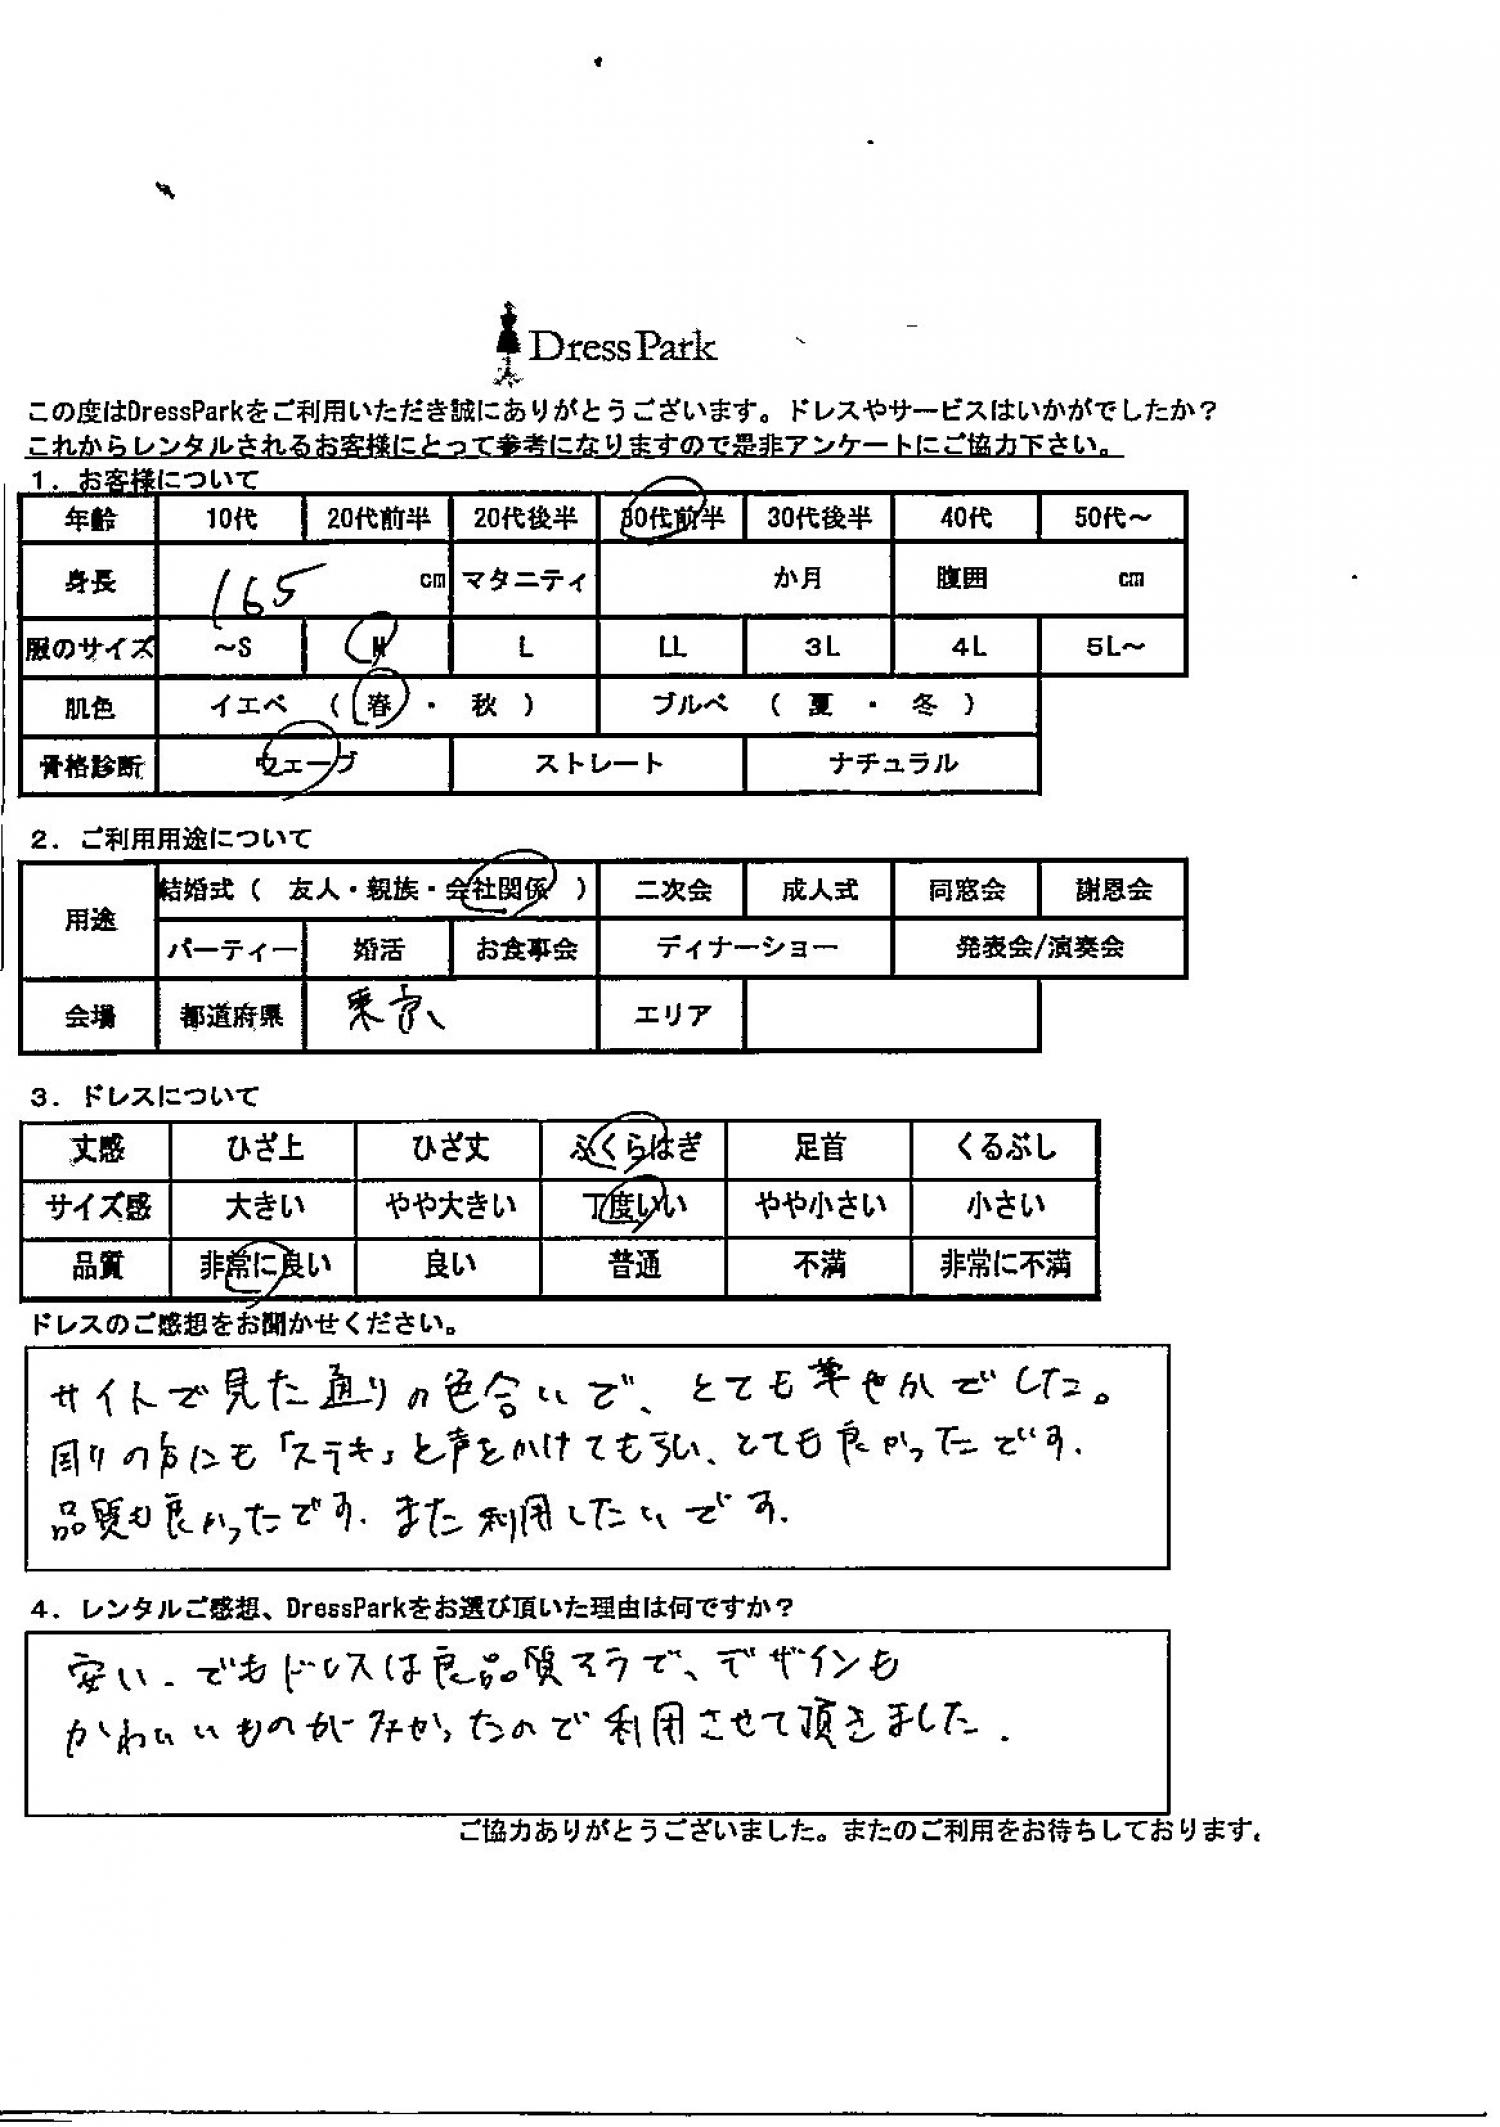 DressPark
この度はDressParkをご利用いただき誠にありがとうございます。ドレスやサービスはいかがでしたか?
これからレンタルされるお客様にとって参考になりますので是非アンケートにご協力下さい。
1. お客様について
年齢 10代 20代前半 20代後半 30代前半 30代後半 40代 50代～
身長 165 cm マタニティ か月 腹囲 cm
服のサイズ ～S M L LL 3L 4L 5L～
肌色 イエベ ( 春 ・ 秋 ) ブルベ ( 夏 ・ 冬 )
骨格診断 ウェーブ ストレート ナチュラル
2. ご利用用途について
用途 結婚式 ( 友人・親族・会社関係 ) 二次会 成人式 同窓会 謝恩会
パーティー 婚活 お食事会 ディナーショー 発表会/演奏会
会場 都道府県 東京 エリア
3. ドレスについて
丈感 ひざ上 ひざ丈 ふくらはぎ 足首 くるぶし
サイズ感 大きい やや大きい 丁度いい やや小さい 小さい
品質 非常に良い 良い 普通 不満 非常に不満
ドレスのご感想をお聞かせください。
サイトで見た通りの色合いで、とても華やかでした。
周りの方にも「ステキ」と声をかけてもらい、とても良かったです.
品質も良かったです. また利用したいです.
4. レンタルご感想、DressParkをお選び頂いた理由は何ですか?
安い. でもドレスは良品質そうで、デザインも
かわいいものが多かったので利用させて頂きました.
ご協力ありがとうございました。またのご利用をお待ちしております。